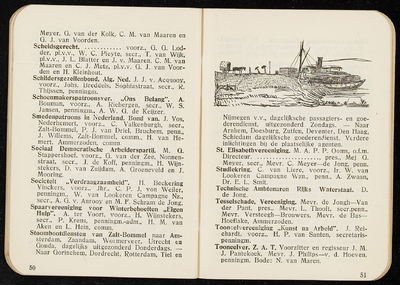 Meyer, G. van der Kolk, C. M. van Maaren en
G. J. van Voorden.
Scheidsgerecht. voorz., G. G. Lod-
der, pl.v.v., W. C. Pleyte, secr., T. van Wijk,
pl.v.v., J. L. Blatter en J. v. Maaren, C. M. van
Maaren en C. J. Metz, pl.v.v. G. J. van Voor-
den en H. Kleinhout.
Schildersgezellenbond, Alg. Ned. J. J. v. Acquooy,
voorz., Joh. Breddels, Sophiastraat, secr., R.
Thijssen, penningm.
Schoenmakerspatroonsver. „Ons Belang”. A.
Bouman, voorz., A. Riebergen, secr., W. S.
Jansen, penningm., A. W. G. de Keijzer.
Smedenpatroons in Nederland, Bond van. J. Vos,
Nederhemert, voorz., C. Valkenburgh, secr.,
Zalt-Bommel, P. J. van Driel, Bruchem, penn.,
J. Willems, Zalt-Bommel, comm., H. van He-
mert, Ammerzoden, comm.
Sociaal Democratische Arbeiderspartij. M. G.
Stappershoef, voorz., G. van der Zee, Nonnen-
straat, secr., J. de Koff, penningm., H. Wijn-
stekers, D. van Zuijdam, A. Groeneveld en J.
Mooring.
Societeit „Verdraagzaamheid”. H. Beckering
Vinckers, voorz., Jhr. C. P. J. van Weiler,
penningm., W. van Lookeren Campagne Nz.,
secr., A. G. v. Anrooy en M. F. Schram de Jong.
Spaarvereeniging voor Winterbehoeften „Eigen
Hulp”. A. ter Voort, voorz., H. Wijnstekers,
secr., P. Krens, penningm.-adm., H. M. van
Aken en L. Hein, comm.
Stoombootdiensten van Zalt-Bommel naar Am-
sterdam, Zaandam, Wormerveer, Utrecht en
Gouda, dagelijks uitgezonderd Donderdags. —
Naar Gorinchem, Dordrecht, Rotterdam, Tiel en
50
Nijmegen v.v., dagelijksche passagiers- en goe-
derendienst, uitgezonderd Zondags. — Naar
Arnhem, Doesburg, Zutfen, Deventer, Den Haag,
Schiedam dagelijksche goederendienst. Verdere
inlichtingen bij de plaatselijke agenten.
St. Elisabethsvereeniging. M. A. P. P. Ooms, o.f.m.
Directeur pres., Mej. G.
Meyer, secr., Mevr. C. Meyer—de Jong, penn.
Studiekring. C. van Liere, voorz., Ir. W. van
Lookeren Campagne Wzn., penn., A. Zwaan,
Dr. E. L. Smit.
Technische Ambtenaren Rijks Waterstaat. D.
de Jong.
Tesselschade, Vereeniging. Mevr. de Jongh—Van
der Pant, pres., Mevr. L. Thooft, secr.-penn.,
Mevr. Versteegh—Brouwers, Mevr. de Bas—
Hoeflake, Ammerzoden.
Tooneelvereeniging „Kunst na Arbeid”. J. Rei-
chardt, voorz., H. P. van Santen, secretaris-
penningm.
Tooneelver. Z. A. T. Voorzitter en regisseur J. M.
J. Pantekoek, Mevr. J. Philips—v. d. Hoeven,
penningm. Bode: N. van Maren.
51